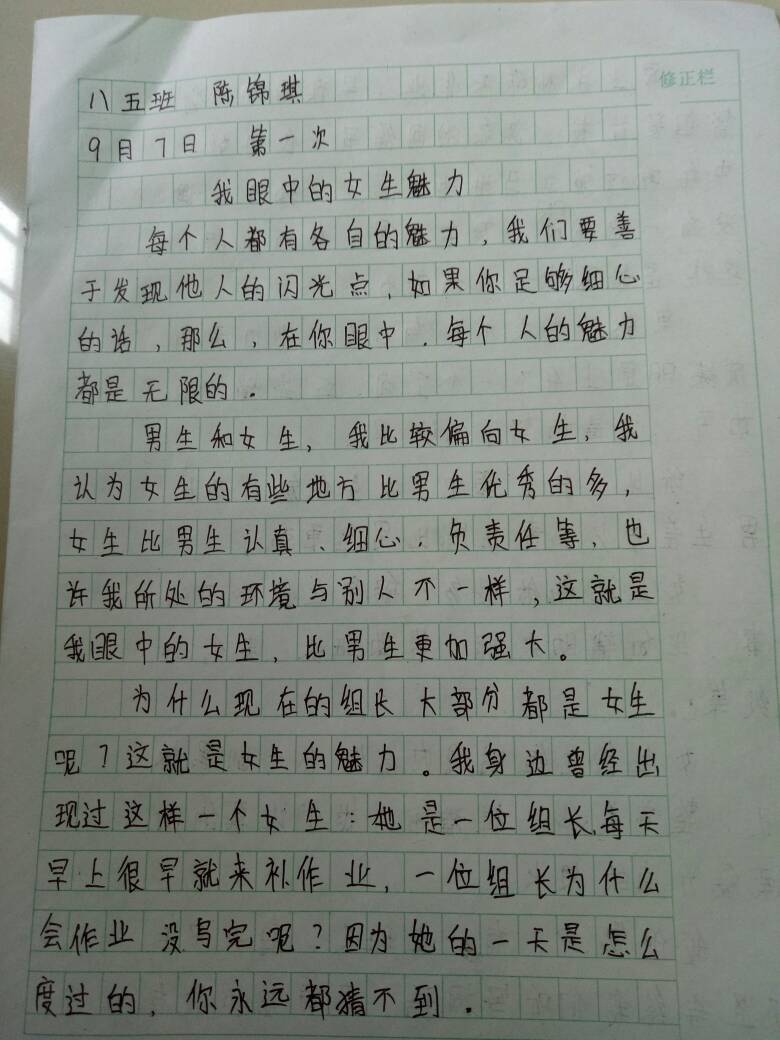 修正栏
八五班 陈锦琪
9月7日 第一次
我眼中的女生魅力
每个人都有各自的魅力，我们要善
于发现他人的闪光点，如果你足够细心
的话，那么，在你眼中．每个人的魅力
都是无限的．
男生和女生，我比较偏向女生，我
认为女生的有些地方比男生优秀的多，
女生比男生认真、细心，负责任等，也
许我所处的环境与别人不一样，这就是
我眼中的女生，比男生更加强大。
为什么现在的组长大部分都是女生
呢？这就是女生的魅力。我身边曾经出
现过这样一个女生：她是一位组长,每天
早上很早就来补作业，一位组长为什么
会作业没写完呢？因为她的一天是怎么
度过的，你永远都猜不到．